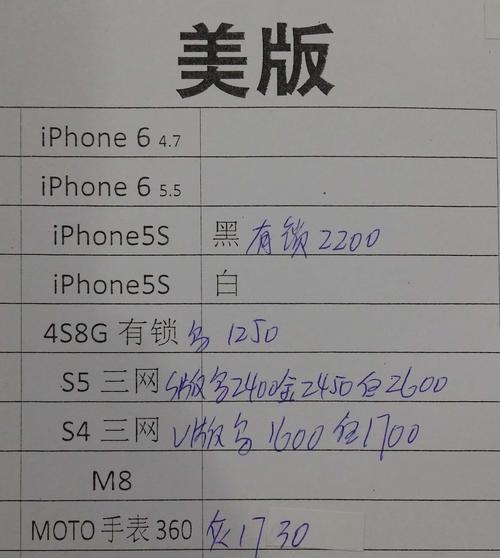 美版
iPhone 6 4.7
iPhone 6 5.5
iPhone5S 黑 有锁 2200
iPhone5S 白
4S8G 有锁 1250
S5 三网 S版 2400 金2450 白2600
S4 三网 V版 1600 白1700
M8
MOTO 手表 360 灰1730